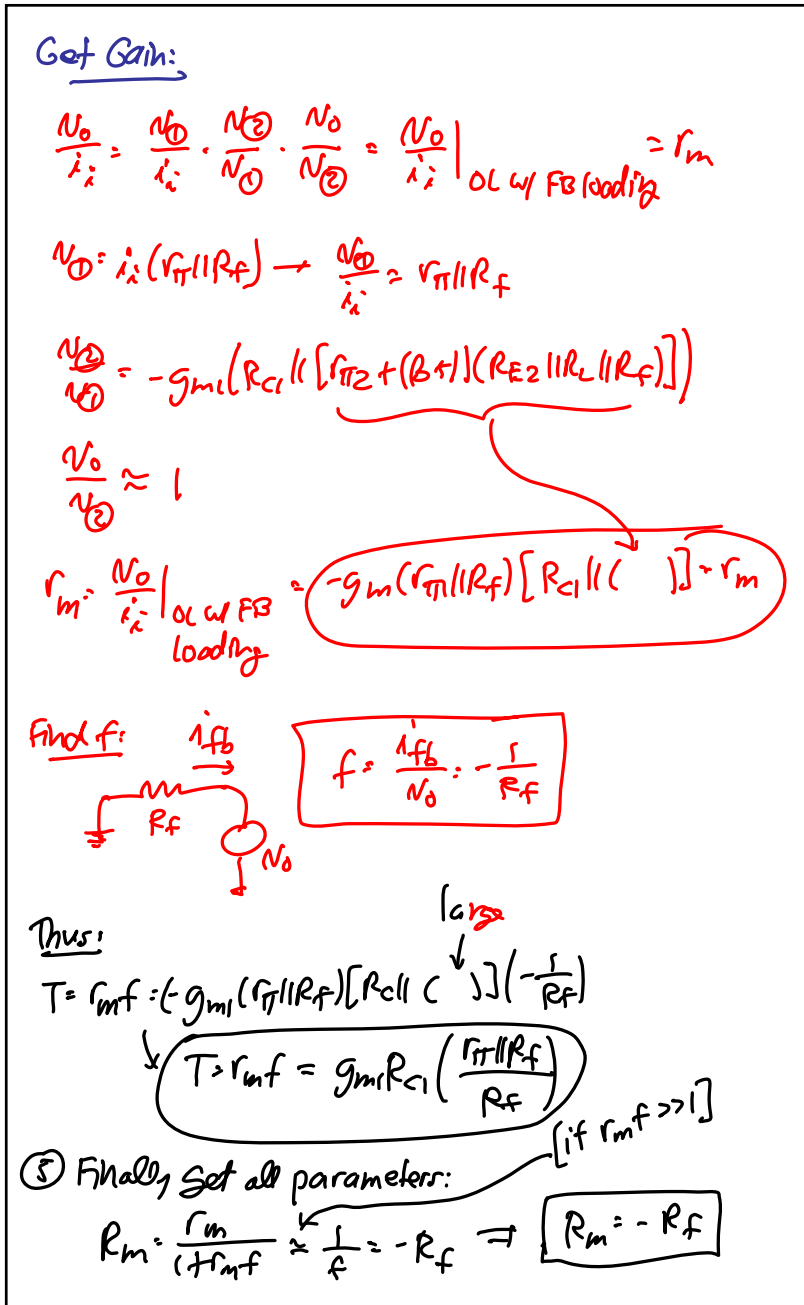 Get Gain:
v₀/iᵢ = v①/iᵢ · v②/v① · v₀/v② = v₀/iᵢ |OL w/ FB loading = rm
v① = iᵢ(rπ||Rf) → v①/iᵢ = rπ||Rf
v②/v① = -gm1(RC1||[rπ2+(β+1)(RE2||RL||Rf)])
v₀/v② ≈ 1
rm = v₀/iᵢ |OL w/ FB loading = -gm(rπ1||Rf)[RC1||( )] = rm
Find f: ifb
f = ifb/v₀ = -1/Rf
Rf
v₀
large
Thus:
T = rmf = (-gm1(rπ||Rf)[RC||( )](-1/Rf)
T = rmf = gm1RC1(rπ||Rf/Rf)
[if rmf >>1]
⑤ Finally, get all parameters:
Rm = rm/(1+rmf) ≈ 1/f = -Rf ⇒ Rm = -Rf